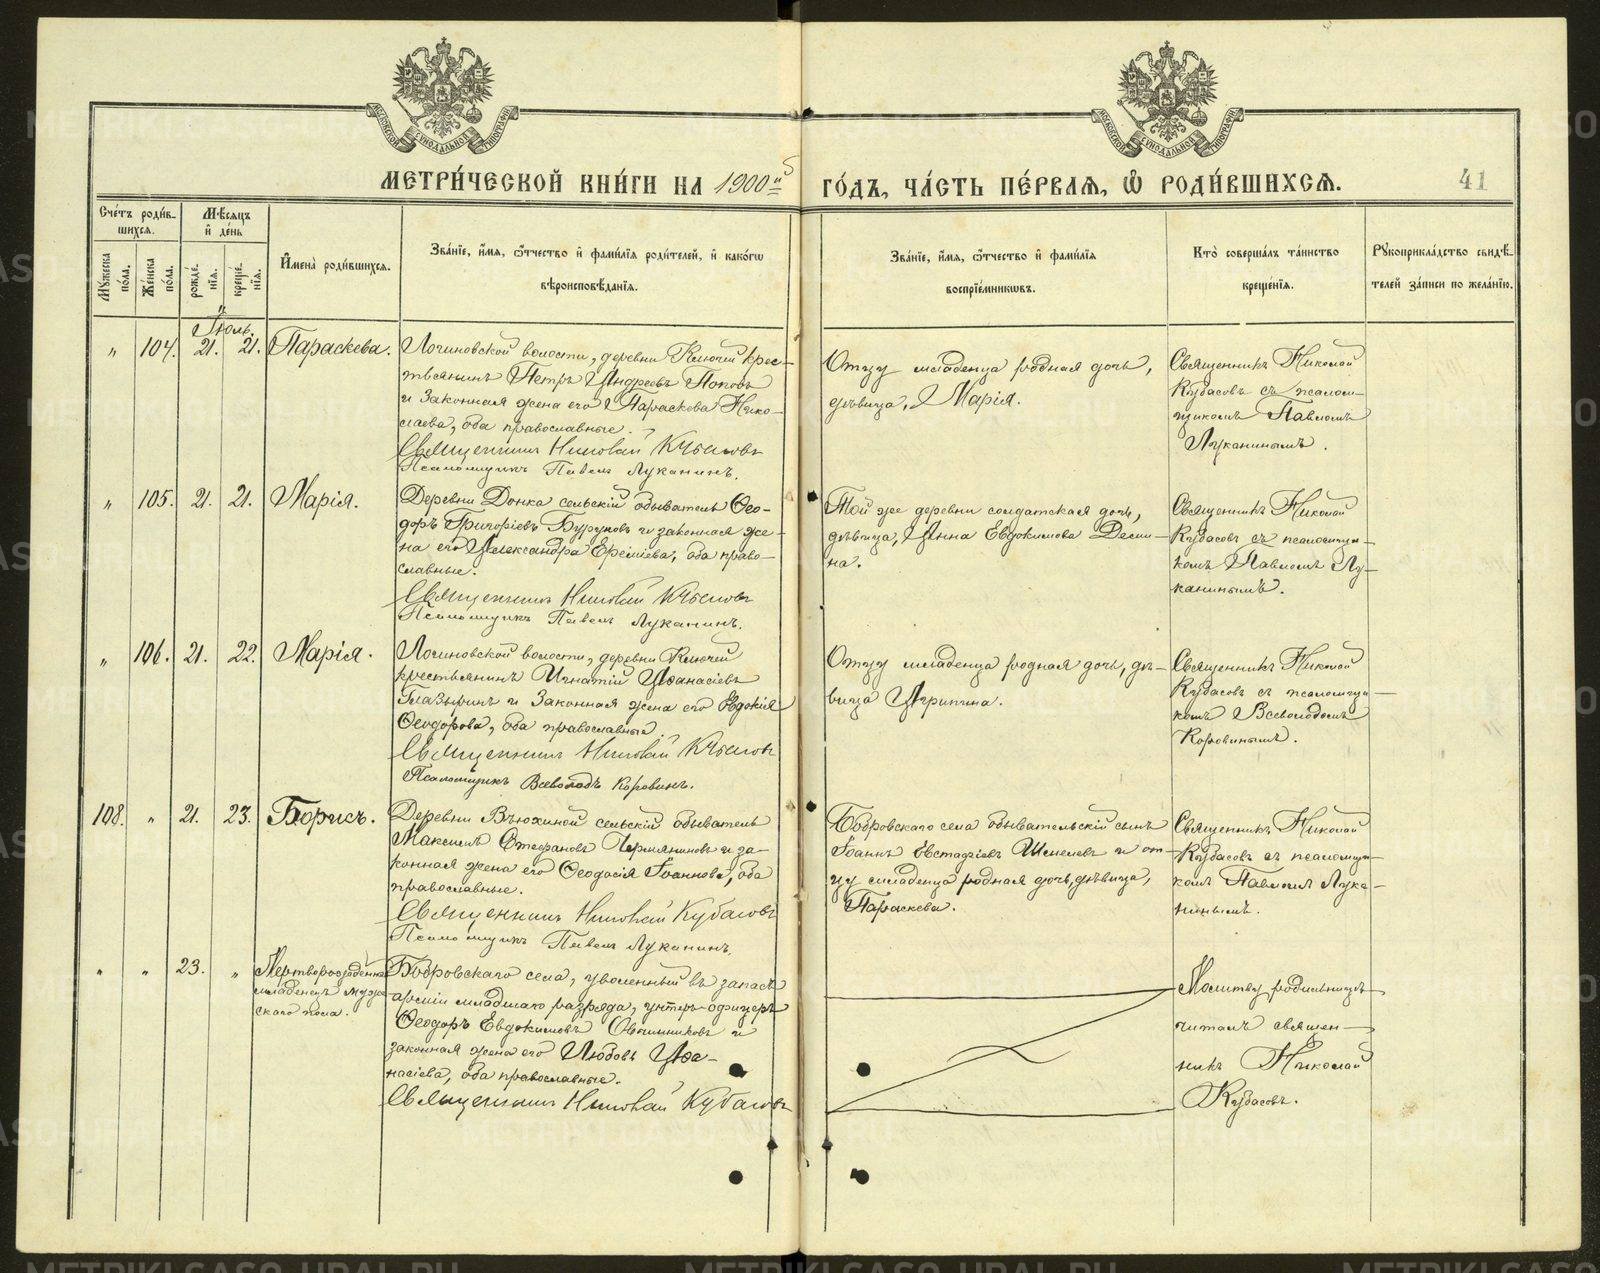 МЕТРИ́ЧЕСКОЙ КНИ́ГИ НА 1900й
ГО́ДЪ, ЧА́СТЬ ПЕ́РВАЯ, Ѿ РОДИ́ВШИХСЯ.
41
Сче́тъ роди́в-
шихся.
Мѣ́сяцъ
и҆ де́нь
Мꙋ́жеска по́ла.
Же́нска по́ла.
рожде́-
нїя.
креще́-
нїя.
И҆мена̀ роди́вшихся.
Зва́нїе, и҆́мя, ѻ҆́тчество и҆ фами́лїя роди́телей, и҆ како́гѡ
вѣроисповѣ́данїя.
Зва́нїе, и҆́мя, ѻ҆́тчество и҆ фами́лїя
воспрїе́мникѡвъ.
Кто̀ соверша́лъ та́инство
креще́нїя.
Рꙋкоприкла́дство свидѣ́-
телей за́писи по жела́нїю.
Іюль.
" 104. 21. 21. Параскева.
Логиновской волости, деревни Ключей крес-
тьянинъ Петръ Андреевъ Поповъ
и законная жена его Параскева Нико-
лаева, оба православные.
Священникъ Николай Кубасовъ
Псаломщикъ Павелъ Луканинъ.
Отцу младенца родная дочь,
дѣвица, Марія.
Священникъ Николай
Кубасовъ съ псалом-
щикомъ Павломъ
Луканинымъ.
" 105. 21. 21. Марія.
Деревни Донка сельскій обыватель Ѳео-
доръ Григоріевъ Бурухинъ и законная же-
на его Александра Ереміева, оба право-
славные.
Священникъ Николай Кубасовъ
Псаломщикъ Павелъ Луканинъ.
Той же деревни солдатская дочь,
дѣвица, Анна Евдокимова Деми-
на.
Священникъ Николай
Кубасовъ съ псаломщи-
комъ Павломъ Лу-
канинымъ.
" 106. 21. 22. Марія.
Логиновской волости, деревни Ключей
крестьянинъ Игнатій Аѳанасіевъ
Глазыринъ и законная жена его Евдокія
Ѳеодорова, оба православные.
Священникъ Николай Кубасовъ
Псаломщикъ Всеволодъ Коровинъ.
Отцу младенца родная дочь, дѣ-
вица Агрипина.
Священникъ Николай
Кубасовъ съ псаломщи-
комъ Всеволодомъ
Коровинымъ.
108. " 21. 23. Борисъ.
Деревни Вьюхиной сельскій обыватель
Максимъ Стефановъ Чермяниновъ и за-
конная жена его Ѳеодосія Іоаннова, оба
православные.
Священникъ Николай Кубасовъ
Псаломщикъ Павелъ Луканинъ.
Бобровскаго села обывательскій сынъ
Іоаннъ Евстафіевъ Шепелевъ и от-
цу младенца родная дочь, дѣвица,
Параскева.
Священникъ Николай
Кубасовъ съ псаломщи-
комъ Павломъ Лука-
нинымъ.
" " 23. " Мертворожденный
младенецъ муже-
скаго пола.
Бобровскаго села, уволенный въ запасъ
арміи младшаго разряда, унтеръ-офицеръ
Ѳеодоръ Евдокимовъ Овчинниковъ и
законная жена его Любовь Аѳа-
насіева, оба православные.
Священникъ Николай Кубасовъ
Молитву родильницѣ
читалъ священ-
никъ Николай
Кубасовъ.